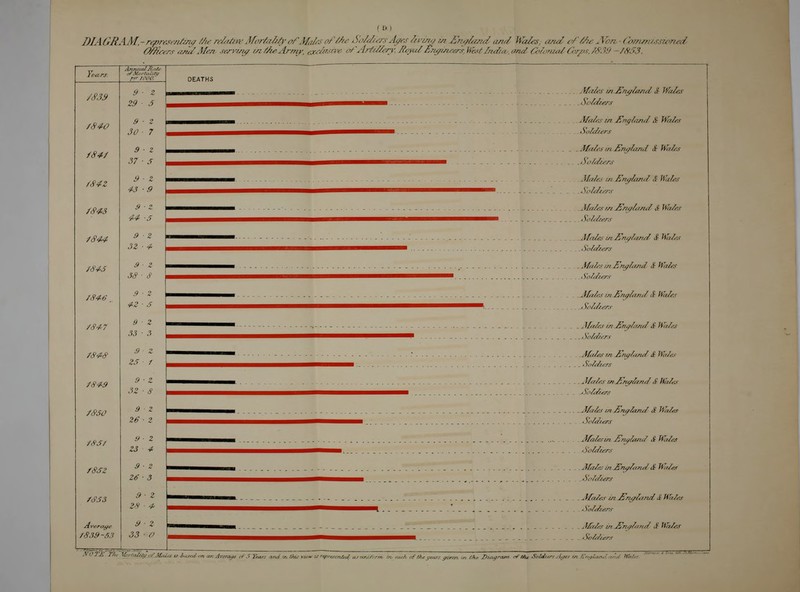 ( D )
DIAGRAM,- representing the relative Mortality of Males of the Soldiers Ages living in England and Wales; and of the Non-Commissioned
Officers and Men serving in the Army, exclusive of Artillery, Royal Engineers, West India, and Colonial Corps, 1839-1853.
Years. Annual Rate of Mortality per 1000 DEATHS
1839 9 · 2 Males in England & Wales
29 · 5 Soldiers
1840 9 · 2 Males in England & Wales
30 · 7 Soldiers
1841 9 · 2 Males in England & Wales
37 · 5 Soldiers
1842 9 · 2 Males in England & Wales
43 · 9 Soldiers
1843 9 · 2 Males in England & Wales
44 · 5 Soldiers
1844 9 · 2 Males in England & Wales
32 · 4 Soldiers
1845 9 · 2 Males in England & Wales
38 · 8 Soldiers
1846 9 · 2 Males in England & Wales
42 · 5 Soldiers
1847 9 · 2 Males in England & Wales
33 · 3 Soldiers
1848 9 · 2 Males in England & Wales
25 · 1 Soldiers
1849 9 · 2 Males in England & Wales
32 · 8 Soldiers
1850 9 · 2 Males in England & Wales
26 · 2 Soldiers
1851 9 · 2 Males in England & Wales
23 · 4 Soldiers
1852 9 · 2 Males in England & Wales
26 · 3 Soldiers
1853 9 · 2 Males in England & Wales
28 · 4 Soldiers
Average 9 · 2 Males in England & Wales
1839-53 33 · 0 Soldiers
NOTE. The Mortality of Males is based on an Average of 5 Years and in this view is represented as uniform in each of the years given in the Diagram of the Soldiers Ages in England and Wales